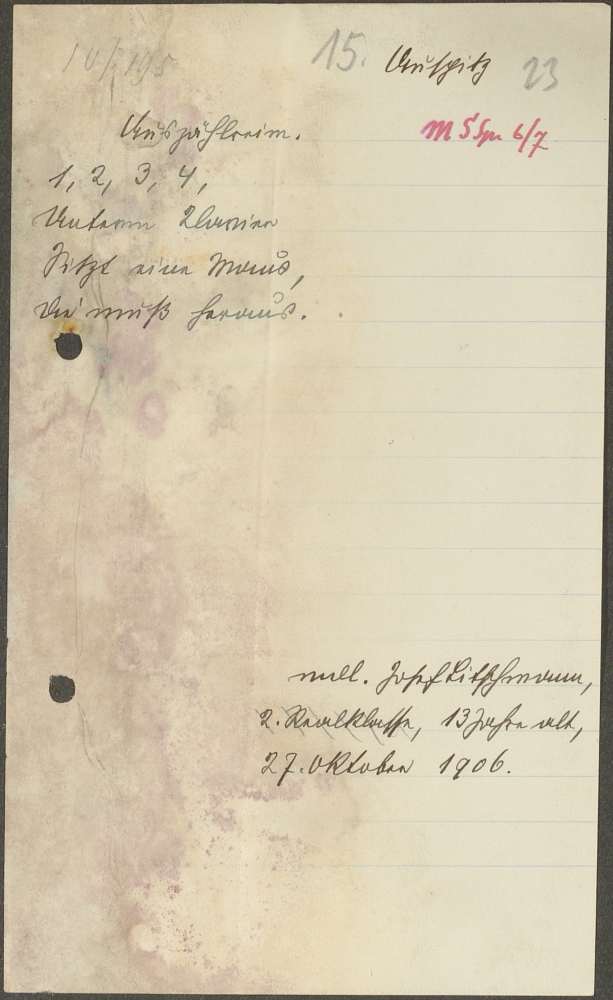 10/195
15. Auspitz 23
Auszählreim.
M S Spr 6/7
1, 2, 3, 4,
Unterm Klavier
Sitzt eine Maus,
Die muß heraus.
mdl. Josef Litschmann,
2. Realklasse, 13 Jahre alt,
27. Oktober 1906.